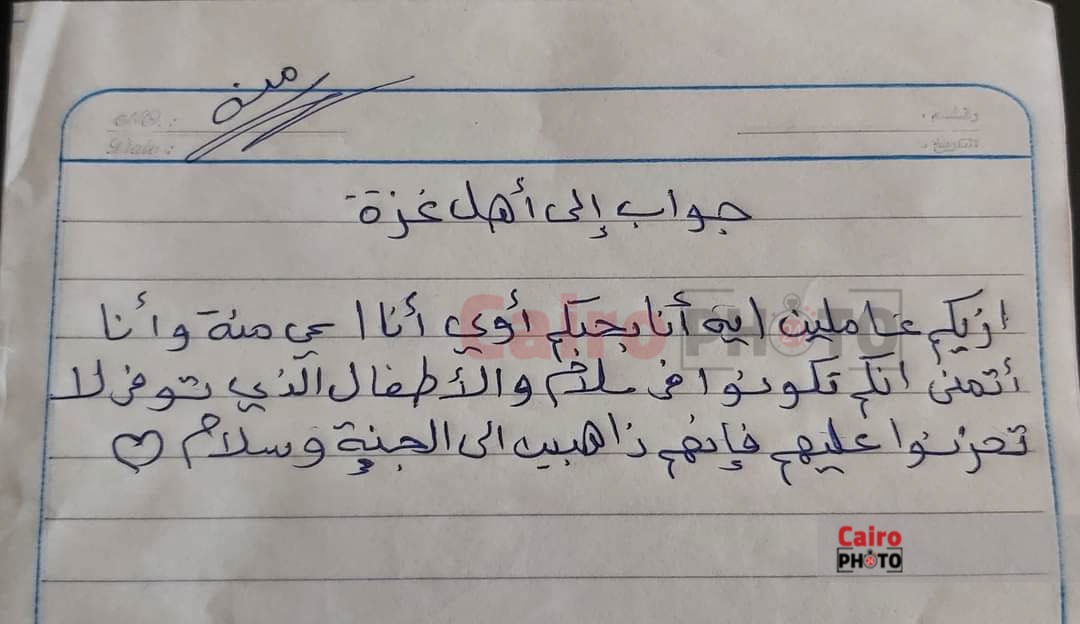 منة
NO. :
Date :
جواب إلى أهل غزة
ازيكم عاملين ايه أنا بحبكم أوي أنا اسمي منة وأنا
أتمنى انكم تكونوا في سلام والأطفال الّذي توفى لا
تحزنوا عليهم فإنهم ذاهبيب الى الجنة وسلام ♡
Cairo PHOTO
Cairo
PHOTO